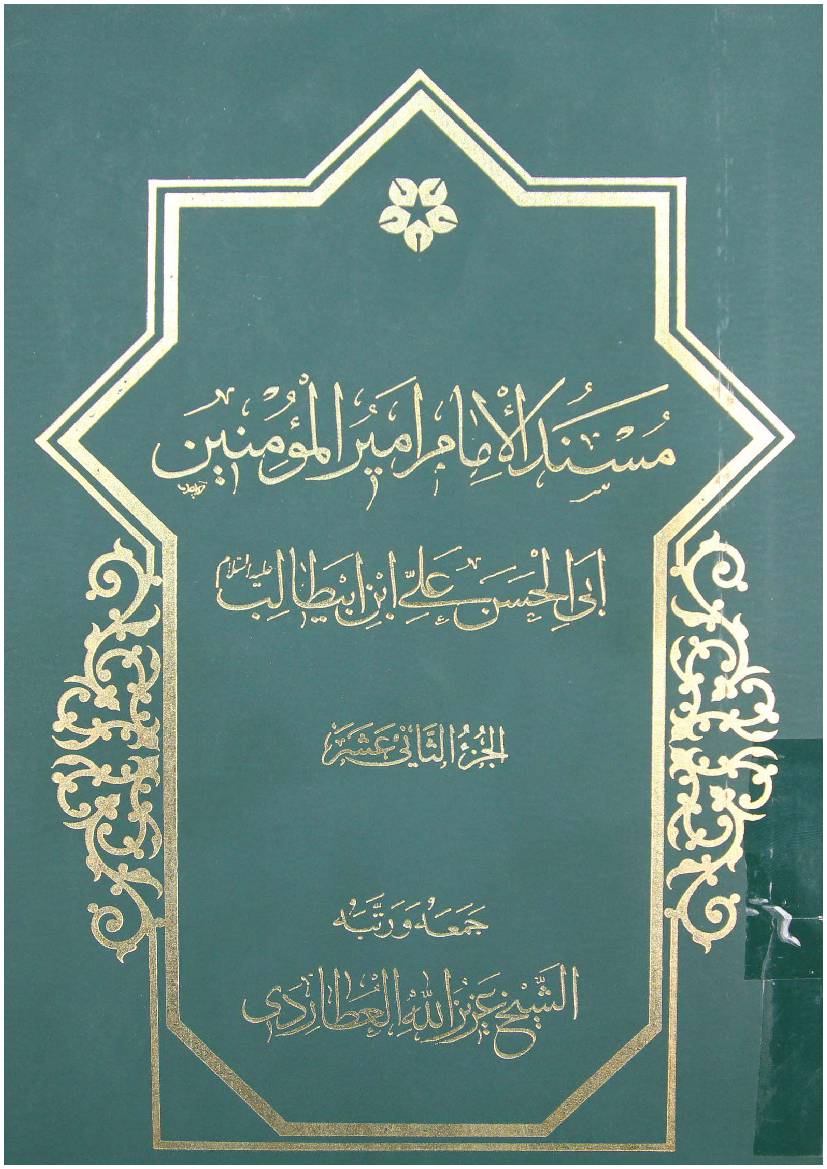 مُسْنَدُ الْإِمَامِ اَمِيرِ الْمُؤْمِنِينَ
اَبِي الْحَسَنِ عَلِيِّ ابْنِ ابيطالِبٍ عليه السلام
الجُزْءُ الثَّانِى عَشَرَ
جَمَعَهُ وَرَتَّبَهُ
الشَّيْخ عَزِيزُ اللهِ الْعُطَارِدِى